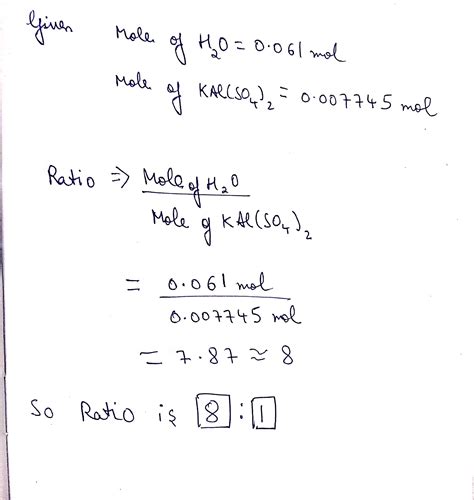 Given Mole of H₂O = 0.061 mol
Mole of KAl(SO₄)₂ = 0.007745 mol
Ratio ⇒ Mole of H₂O
Mole of KAl(SO₄)₂
= 0.061 mol
0.007745 mol
= 7.87 ≃ 8
So Ratio is 8 : 1